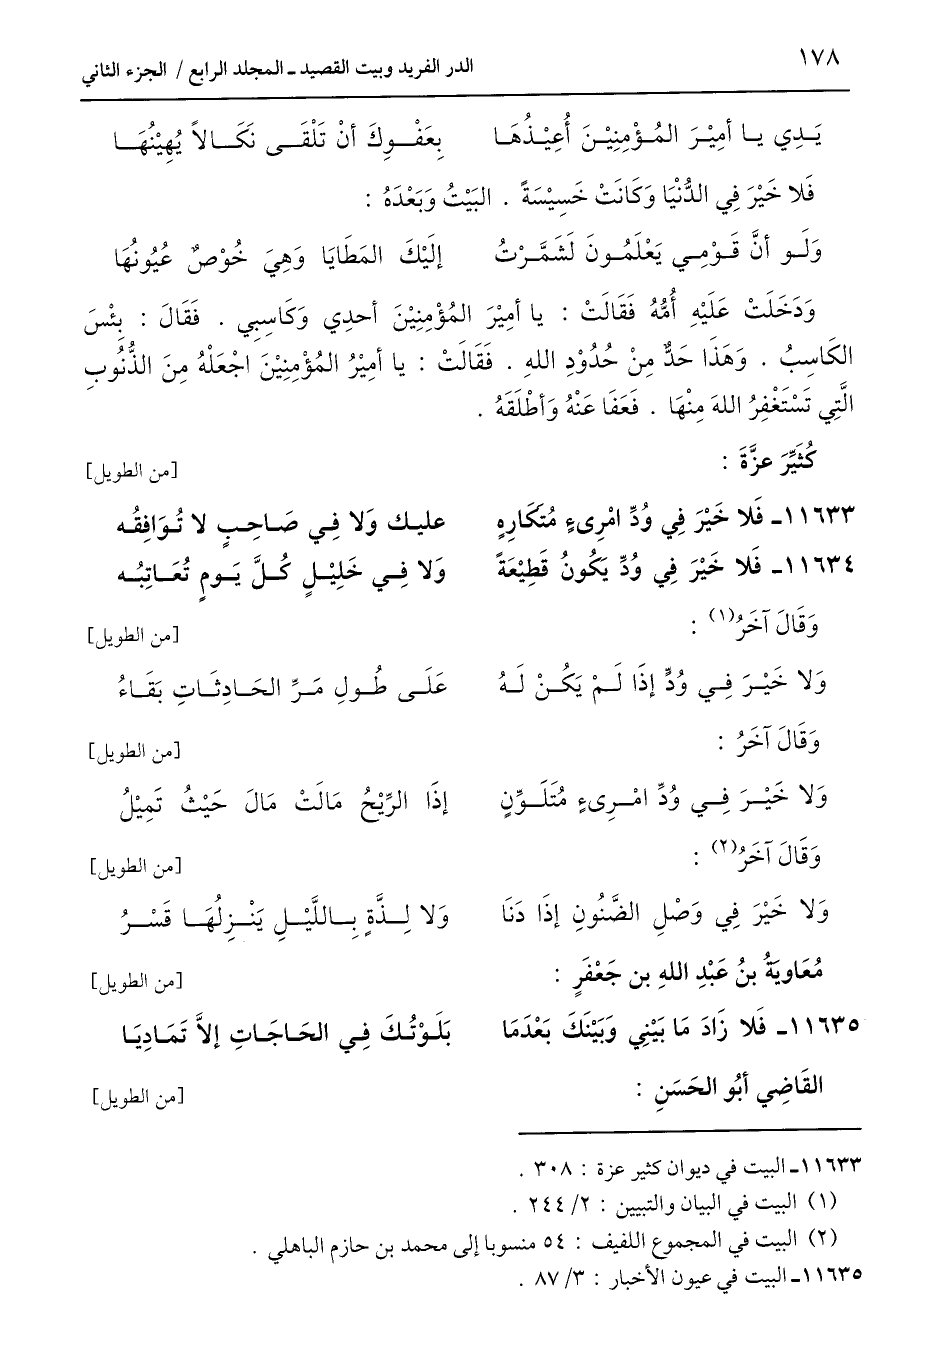 ١٧٨
الدر الفريد وبيت القصيد ـ المجلد الرابع / الجزء الثاني
يَـدِي يـا أمِيْـرَ المُـؤْمِنِيْـنَ أُعِيْـذُهَـا بِعَفْـوِكَ أنْ تَلْقَـى نَكَـالاً يُهِيْنُهَـا
فَلا خَيْرَ فِي الدُّنْيَا وَكَانَتْ خَسِيْسَةً . البَيْتُ وَبَعْدَهُ :
وَلَـو أنَّ قَـوْمِـي يَعْلَمُـونَ لَشَمَّـرْتُ إلَيْكَ المَطَايَا وَهِيَ خُوْصٌ عُيُونُهَا
وَدَخَلَتْ عَلَيْهِ أُمُّهُ فَقَالَتْ : يا أمِيْرَ المُؤْمِنِيْنَ أحدِي وَكَاسِبِي . فَقَالَ : بِئْسَ
الكَاسِبُ . وَهَذَا حَدٌّ مِنْ حُدُوْدِ اللهِ . فَقَالَتْ : يا أمِيْرُ المُؤْمِنِيْنَ اجْعَلْهُ مِنَ الذُّنُوبِ
الَّتِي تَسْتَغْفِرُ اللهَ مِنْهَا . فَعَفَا عَنْهُ وَأطْلَقَهُ .
كُثَيِّرَ عزَّةَ :
[من الطويل]
١١٦٣٣ـ فَلا خَيْرَ فِي وُدِّ امْرِىءٍ مُتَكَارِهٍ عليـك وَلا فِـي صَـاحِـبٍ لا تُـوَافِقُـه
١١٦٣٤ـ فَلا خَيْرَ فِي وُدٍّ يَكُونُ قَطِيْعَةً وَلا فِـي خَلِيْـلٍ كُـلَّ يَـومٍ تُعَـاتِبُـه
وَقَالَ آخَرُ(١) :
[من الطويل]
وَلا خَيْـرَ فِـي وُدٍّ إذَا لَـمْ يَكُـنْ لَـهُ عَلَـى طُـولِ مَـرِّ الحَـادِثَـاتِ بَقَـاءُ
وَقَالَ آخَرُ :
[من الطويل]
وَلا خَيْـرَ فِـي وُدِّ امْـرِىءٍ مُتَلَـوِّنٍ إذَا الرِّيْحُ مَالَتْ مَالَ حَيْثُ تَمِيْلُ
وَقَالَ آخَرُ(٢) :
[من الطويل]
وَلا خَيْرَ فِي وَصْلِ الضَّنُونِ إذَا دَنَا وَلا لِـذَّةٍ بِـاللَّيْـلِ يَنْـزِلُهَـا قَسْـرُ
مُعَاويَةُ بنُ عَبْدِ اللهِ بن جَعْفَرٍ :
[من الطويل]
١١٦٣٥ـ فَلا زَادَ مَا بَيْنِي وَبَيْنَكَ بَعْدَمَا بَلَـوْتُـكَ فِـي الحَـاجَـاتِ إلاَّ تَمَـادِيَـا
القَاضِي أبُو الحَسَنِ :
[من الطويل]
١١٦٣٣ـ البيت في ديوان كثير عزة : ٣٠٨ .
(١) البيت في البيان والتبيين : ٢/ ٢٤٤ .
(٢) البيت في المجموع اللفيف : ٥٤ منسوبا إلى محمد بن حازم الباهلي .
١١٦٣٥ـ البيت في عيون الأخبار : ٣/ ٨٧ .